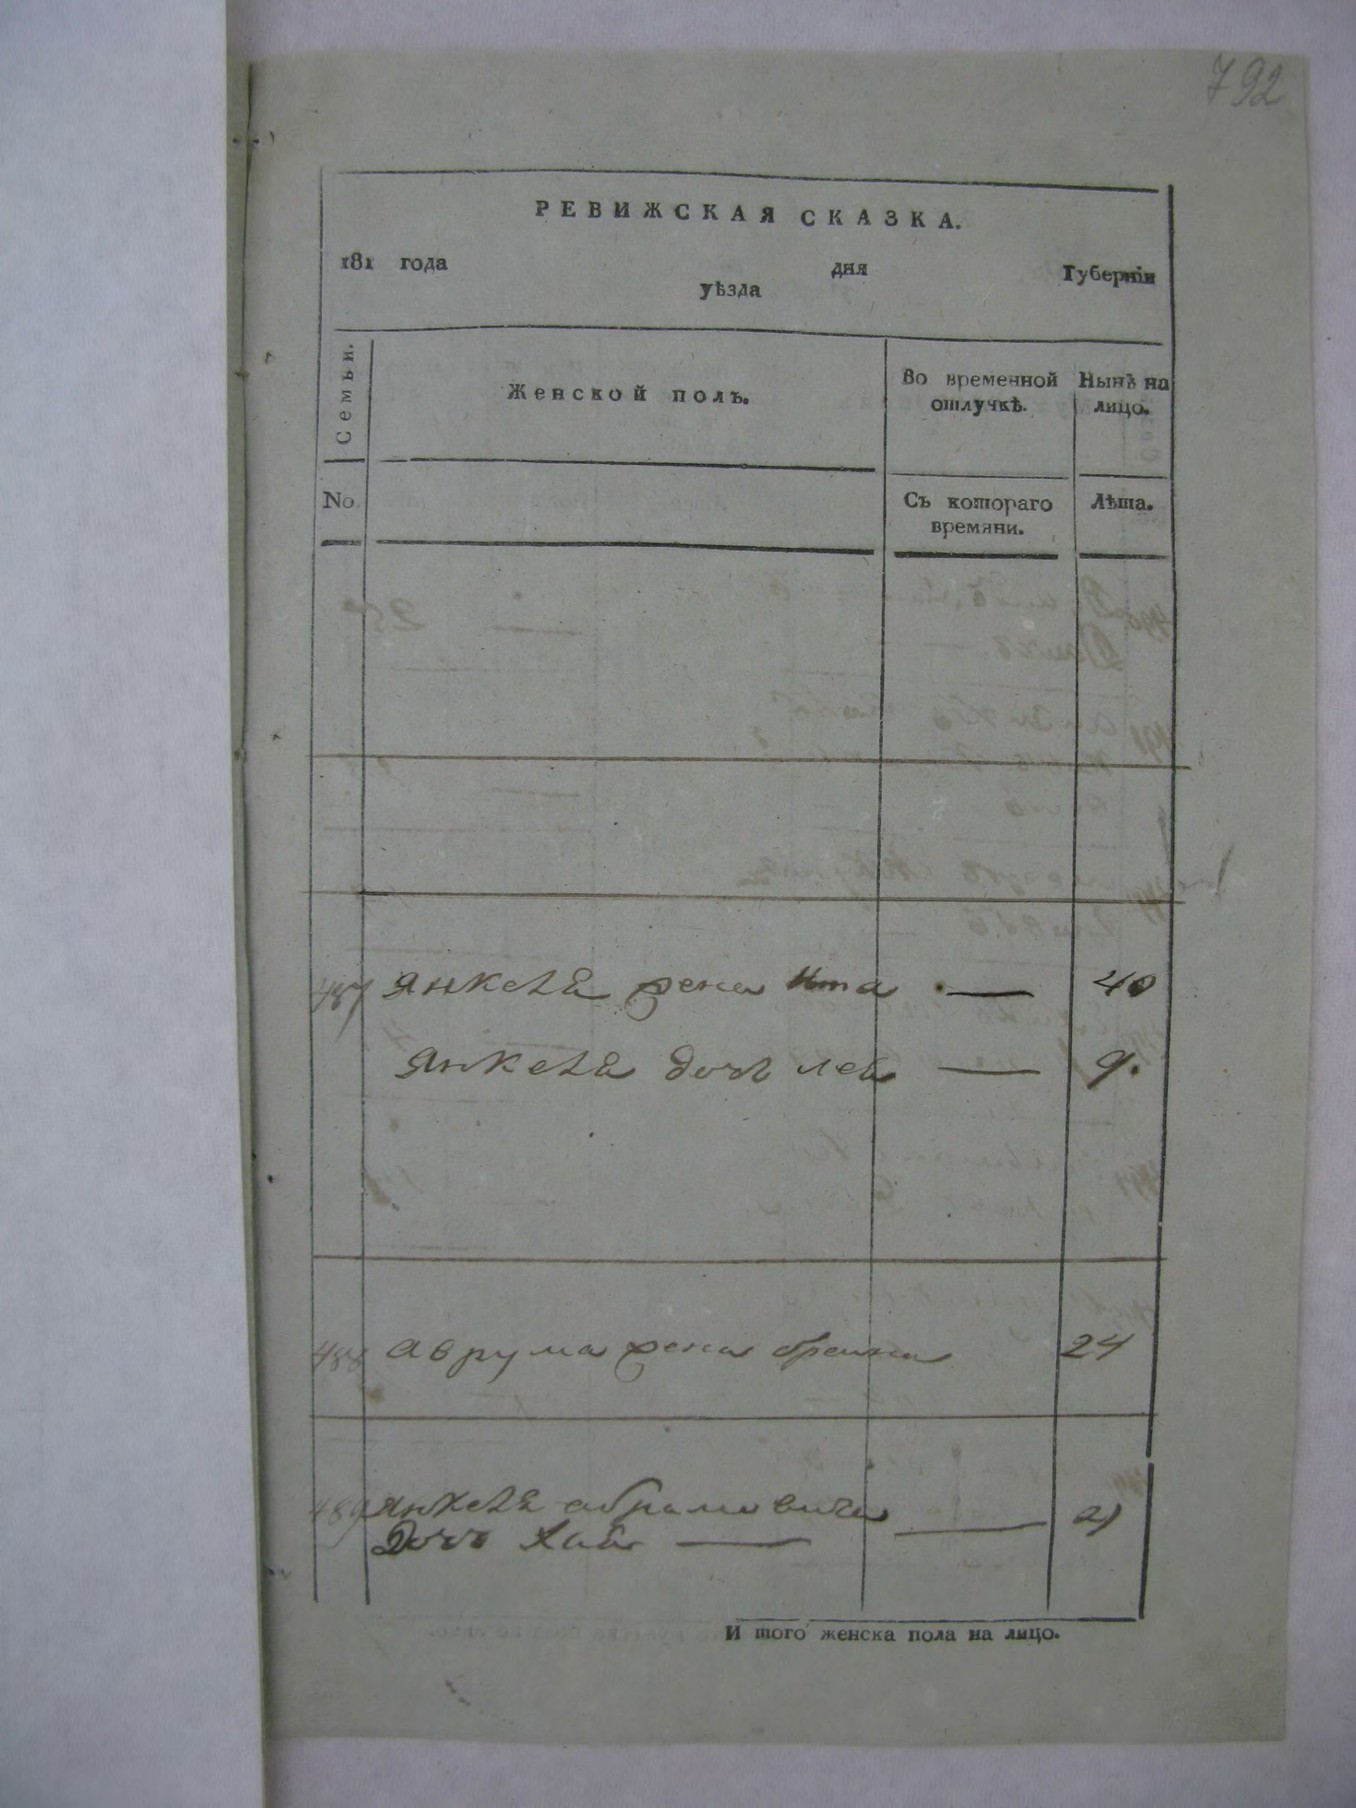 792
РЕВИЖСКАЯ СКАЗКА.
181 года дня Губерніи
уѣзда
Семьи. Женской полъ. Во временной отлучкѣ. Нынѣ на лицо.
No. Съ котораго времяни. Лѣта.
487 Янкеля жена Ита — 40
Янкеля дочь Лея — 9.
488 Аврума жена Брейна 24
489 Янкеля Абрамовича
Дочь Хая — — 21
И того женска пола на лицо.